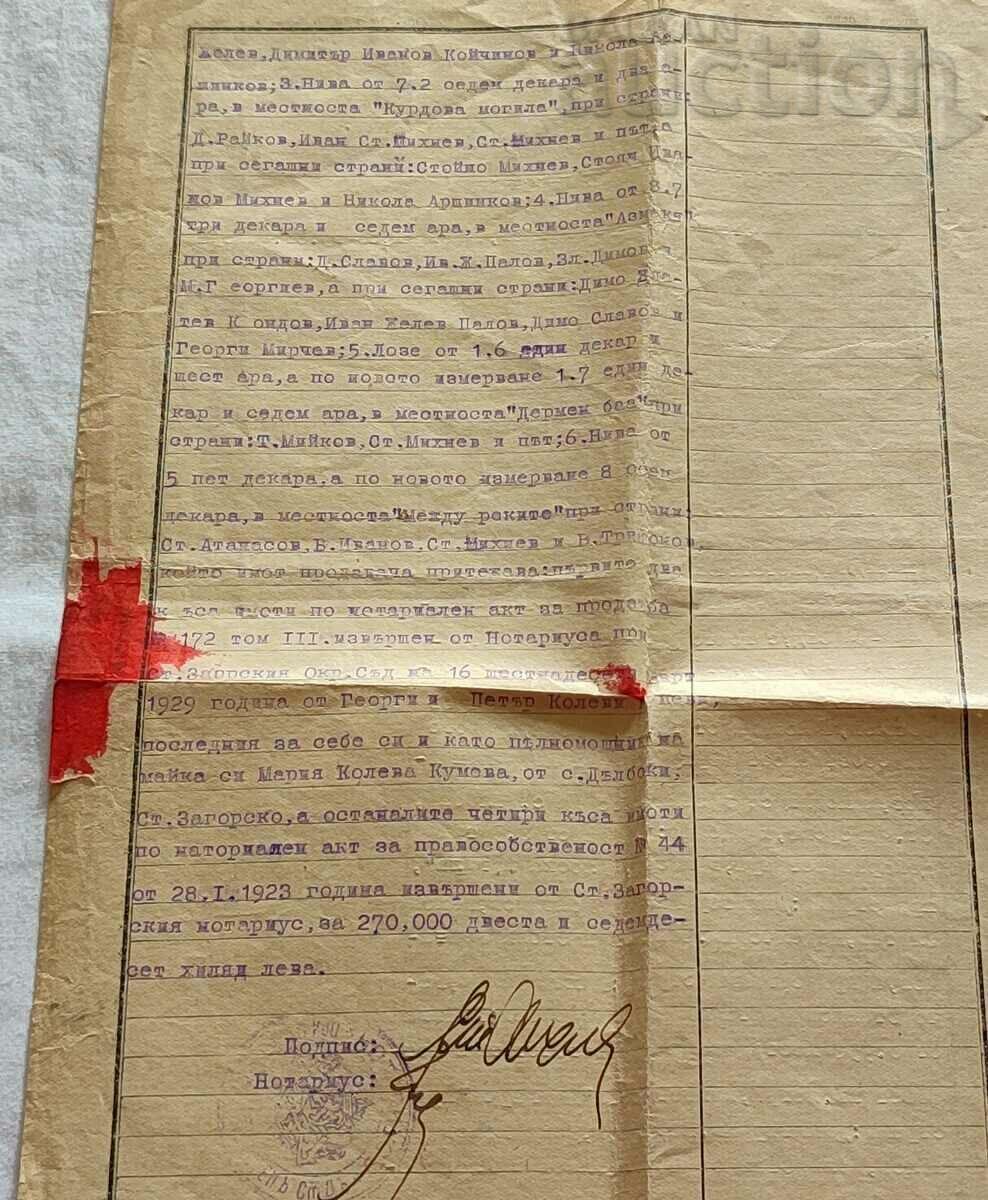 Желев, Димитър Иванов Койчинов и Никола Ар-
шинков; 3. Нива от 7.2 седем декара и два а-
ра, в местноста "Курдова могила", при страни:
Д. Райков, Иван Ст. Михнев, Ст. Михнев и пътя
при сегашни страни: Стойно Михнев, Стойч Ива-
нов Михнев и Никола Аршинков; 4. Нива от 3.7
три декара и седем ара, в местноста "Азмака"
при страни: Д. Славов, Ив. Ж. Палов, Зл. Димов и
М. Георгиев, а при сегашни страни: Димо Зла-
тев Кондов, Иван Желев Палов, Димо Славов и
Георги Мирчев; 5. Лозе от 1.6 един декар и
шест ара, а по новото измерване 1.7 един де-
кар и седем ара, в местноста "Дермен баа" при
страни: Т. Мийков, Ст. Михнев и път; 6. Нива от
5 пет декара, а по новото измерване 8 осем
декара, в местноста "Между реките" при страни:
Ст. Атанасов, Б. Иванов, Ст. Михнев и В.
който имот продавача притежава: първите два
къса имоти по нотариален акт за продажба
№ 172 том III. извършен от Нотариуса при
Ст. Загорския Окр. Съд на 16 шестнадесети март
1929 година от Георги и Петър Колеви
последния за себе си и като пълномощник на
майка си Мария Колева Кумова, от с. Дълбоки,
Ст. Загорско, а останалите четири къса имоти
по наториален акт за правособственост № 44
от 28.I.1923 година извършени от Ст. Загор-
ския нотариус, за 270,000 двеста и седемде-
сет хиляди лева.
Подпис:
Нотариус: